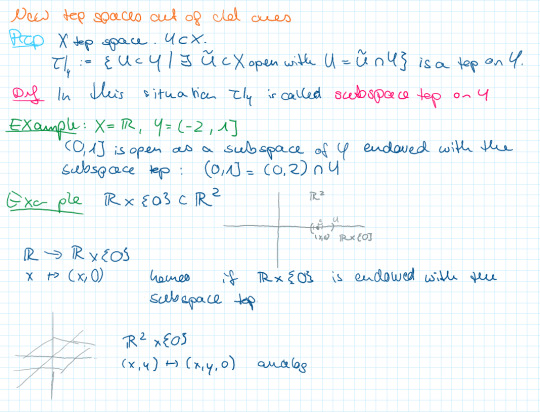 New top spaces out of old ones
Prop X top space. Y⊂X.
τ|y := {U⊂Y | ∃ Ũ⊂X open with U = Ũ∩Y} is a top on Y.
Def In this situation τ|y is called subspace top on Y
Example: X=ℝ, Y=(-2,1]
(0,1] is open as a subspace of Y endowed with the
subspace top: (0,1] = (0,2)∩Y
Example ℝ×{0} ⊂ ℝ²
ℝ²
U
(x,0) ℝ×{0}
ℝ → ℝ×{0}
x ↦ (x,0) homeo if ℝ×{0} is endowed with the
subspace top
ℝ²×{0}
(x,y) ↦ (x,y,0) analog